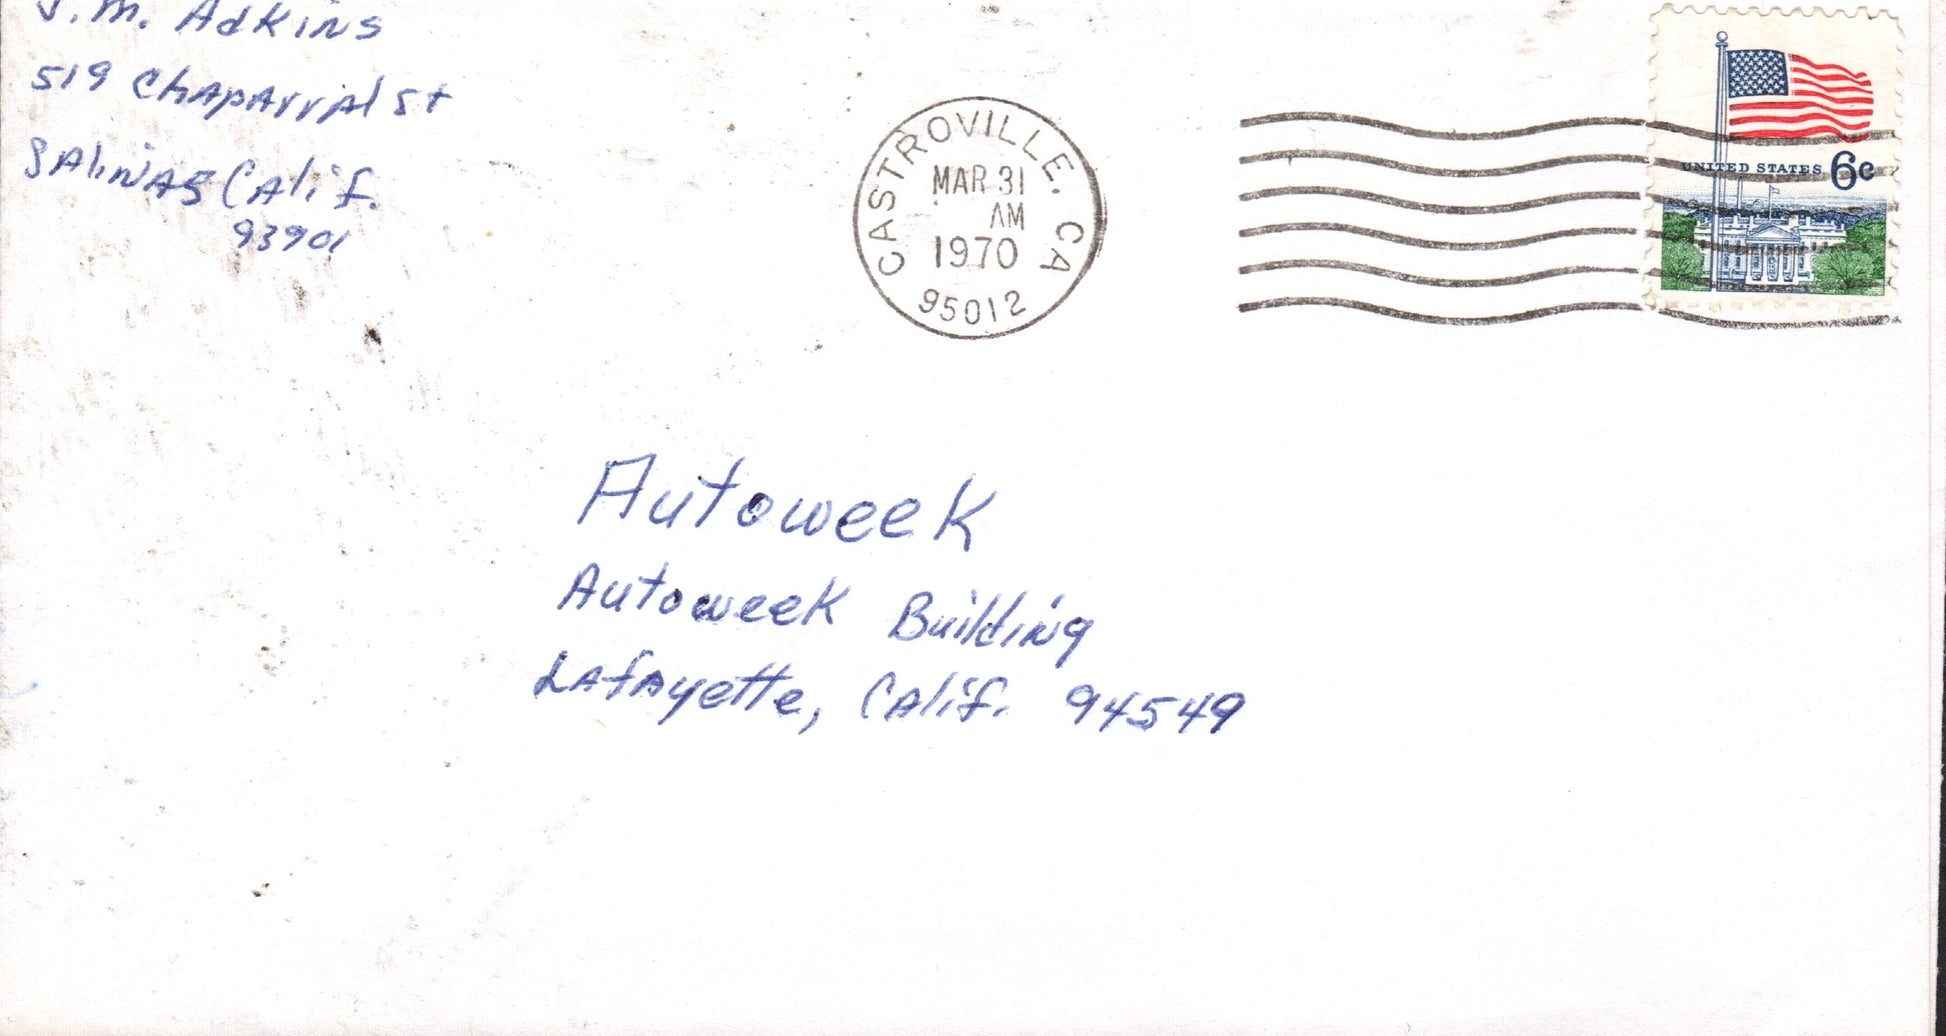 J.M. Adkins
519 Chaparral St
Salinas Calif.
93901
CASTROVILLE, CA
MAR 31
AM
1970
95012
UNITED STATES 6c
Autoweek
Autoweek Building
Lafayette, Calif. 94549